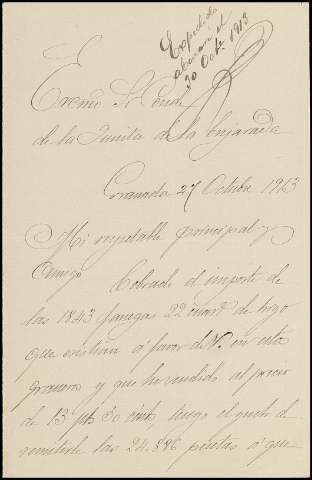 Expedido
abonaré el
30 Octe. 1913
Excmo Sr Conde
de la Quinta de la Enjarada
Granada 27 Octubre 1913
Mi respetable principal y
Amigo Cobrado el importe de
las 1843 fanegas 22 cuart.s de trigo
que existian á favor de V. en esta
granero y que he vendido al precio
de 13 pts 50 cints, tengo el gusto de
remitirle las 24.886 pesetas á que